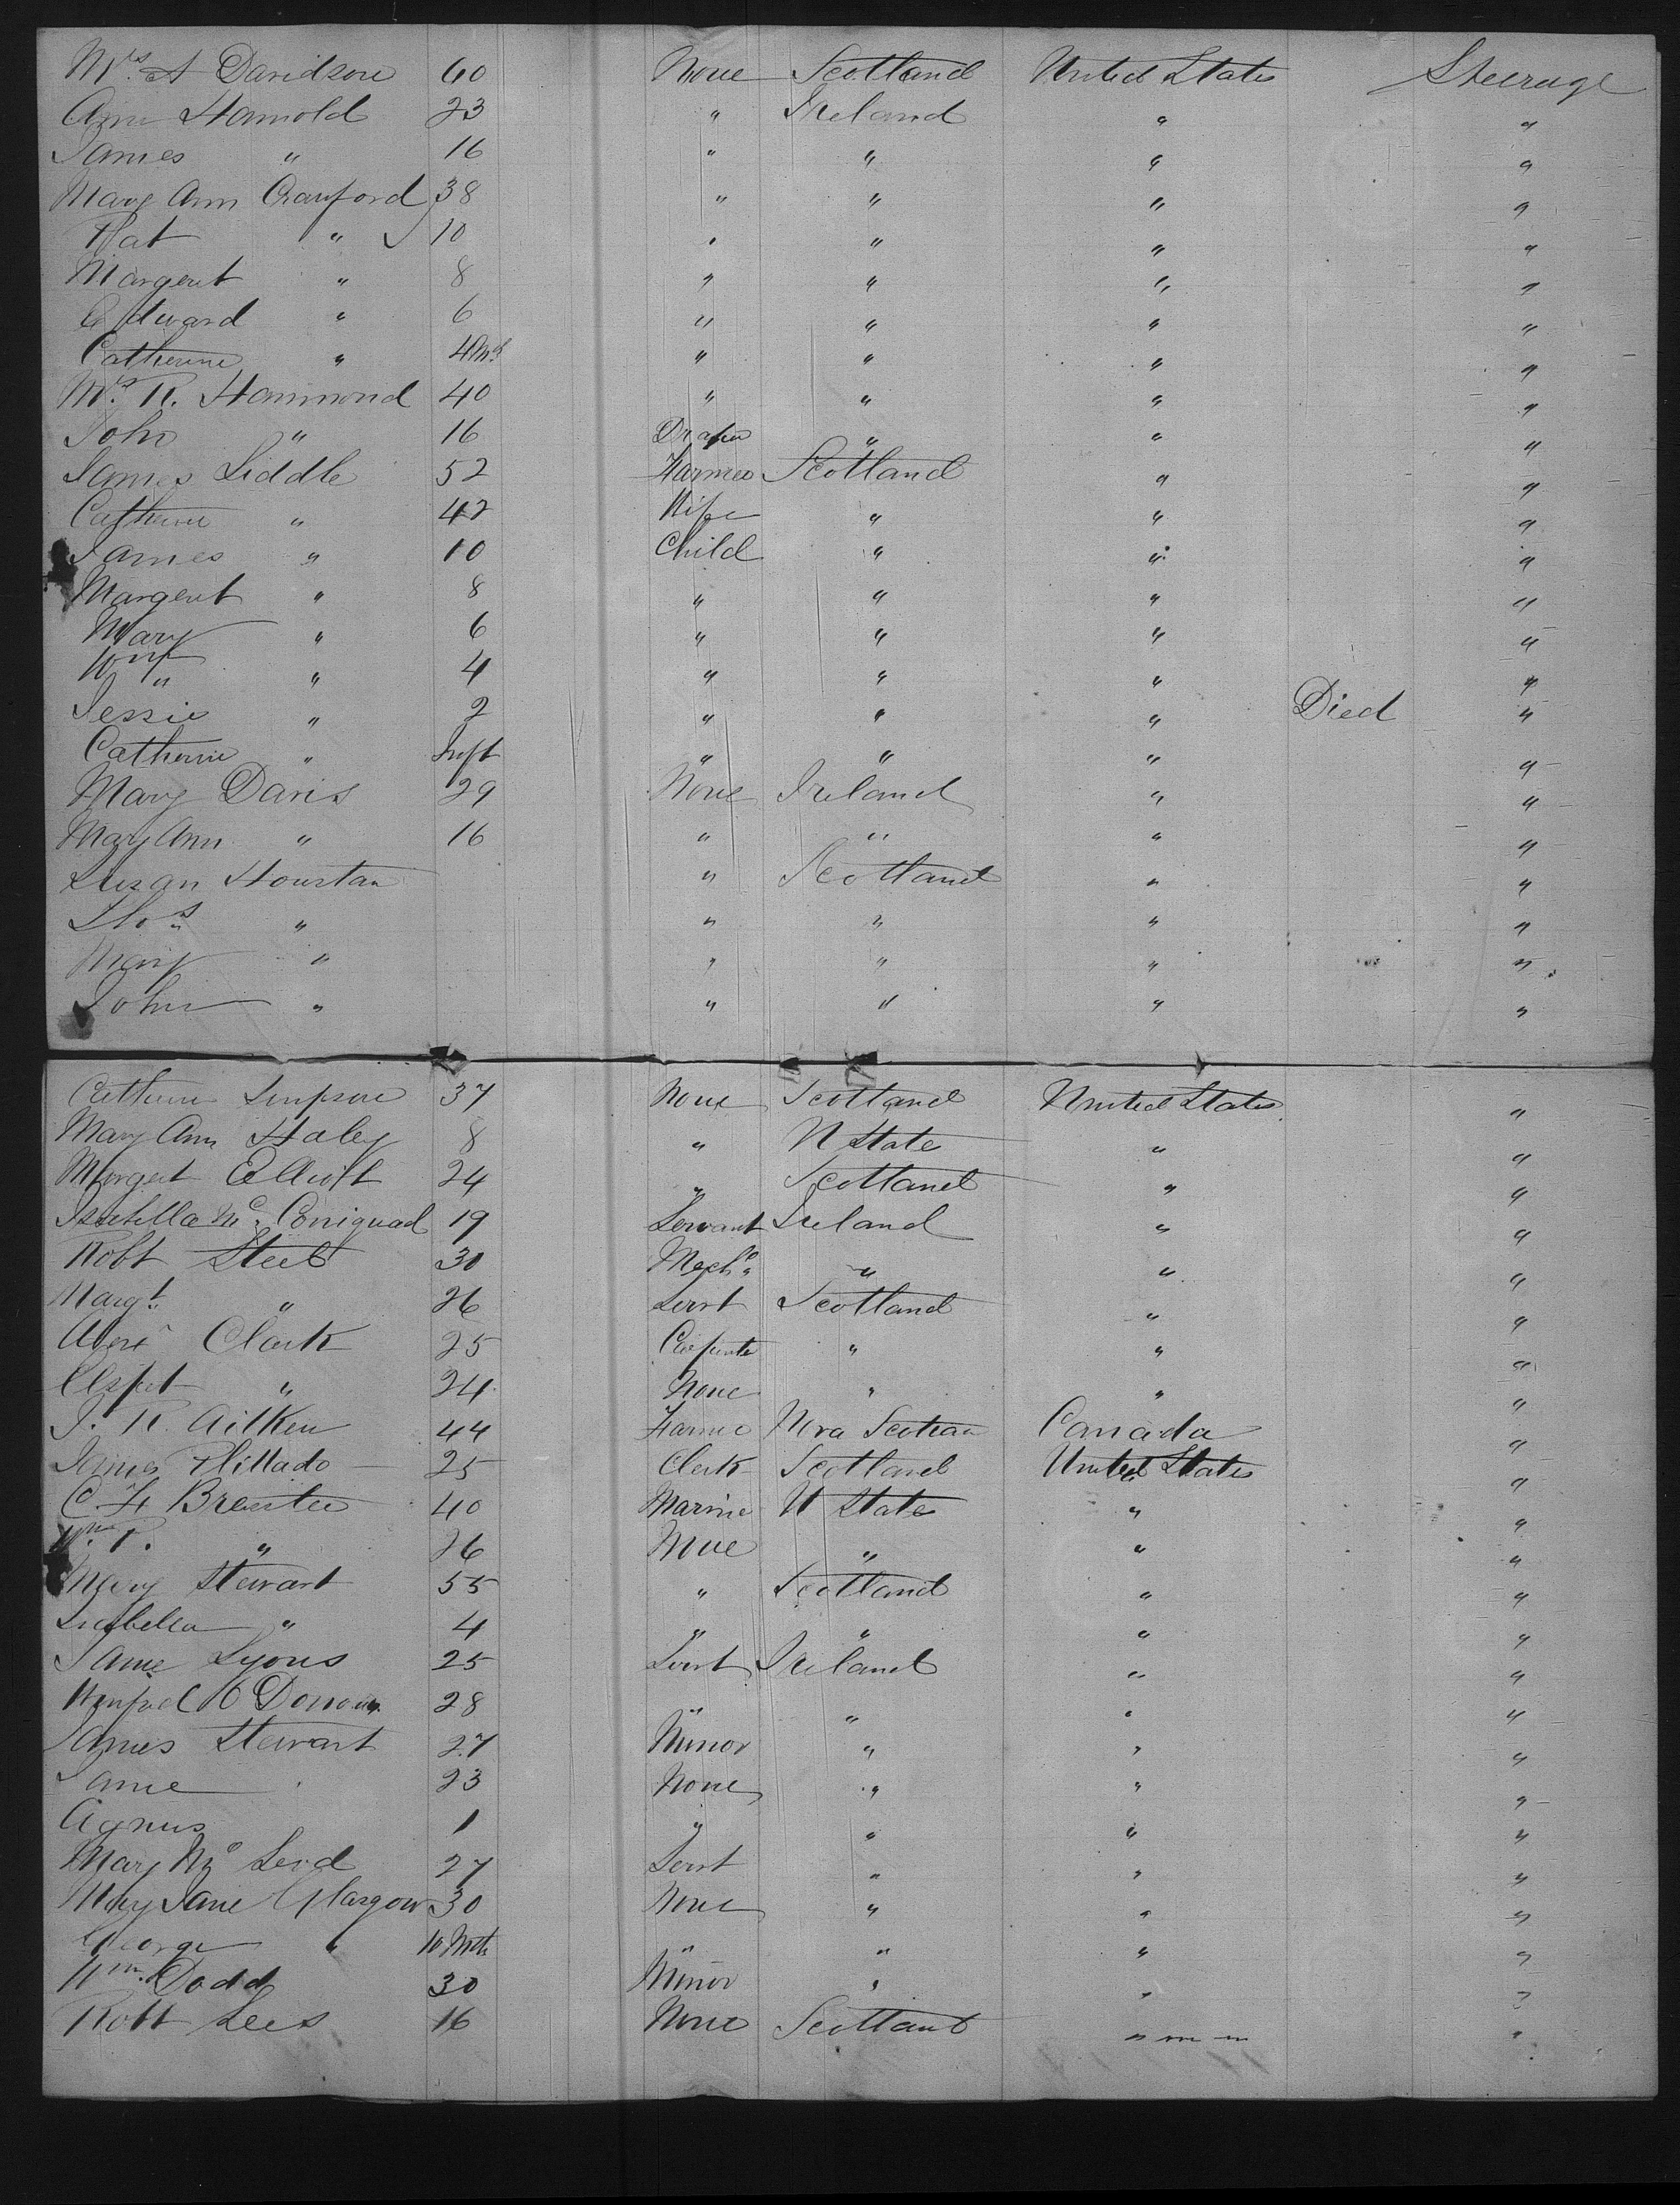 Mrs. A Davidson 60 None Scotland United States Steerage
Ann Hamold 23 " Ireland " "
James " 16 " " " "
Mary Ann Crawford 38 " " " "
Pat " 10 " " " "
Margeret " 8 " " " "
Edward " 6 " " " "
Catherine " 4 Mts " " " "
Mrs. R. Hammond 40 " " " "
John " 16 Draper " " "
James Liddle 52 Farmer Scotland " "
Catherine " 42 Wife " " "
James " 10 Child " " "
Margeret " 8 " " " "
Mary " 6 " " " "
Wm " 4 " " " "
Jessie " 2 " " " Died "
Catherine " Inft " " " "
Mary Davis 29 None Ireland " "
Mary Ann " 16 " " " "
Susan Houstan " Scotland " "
Thos " " " " "
Mary " " " " "
John " " " " "
Catherine Simpson 37 None Scotland United States "
Mary Ann Haley 8 " U State " "
Margeret Elliott 24 " Scotland " "
Isabella Mc 19 Servant Ireland " "
Robt Steel 30 Mechc " " "
Margt " 26 Servt Scotland " "
Alexr Clark 25 Carpenter " " "
Elspet " 24 None " " "
J. R. Aitken 44 Farmer Nova Scotian Canada "
James 25 Clerk Scotland United States "
C. H Brewster 40 Marine U State " "
Wm. P. " 26 None " " "
Mary Stewart 55 " Scotland " "
Isabella " 4 " " " "
Jane Lyons 25 Servt Ireland " "
Winfred O Donovan 28 " " " "
James Stewart 27 Minor " " "
Jane 23 None " " "
Agnus 1 " " " "
Mary Mc Leod 27 Servt " " "
Mary Jane Glasgow 30 None " " "
George " 10 Mth " " " "
Wm. Dodd 30 Minor " " "
Robt Lees 16 None Scotland " "